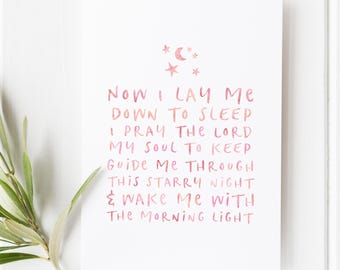 NOW I LAY ME
DOWN TO SLEEP
I PRAY THE LORD
MY SOUL TO KEEP
GUIDE ME THROUGH
THIS STARRY NIGHT
& WAKE ME WITH
THE MORNING LIGHT